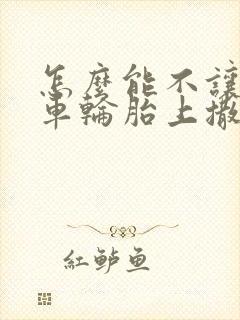 怎麼能不讓
車輪胎上撒
紅鱸魚